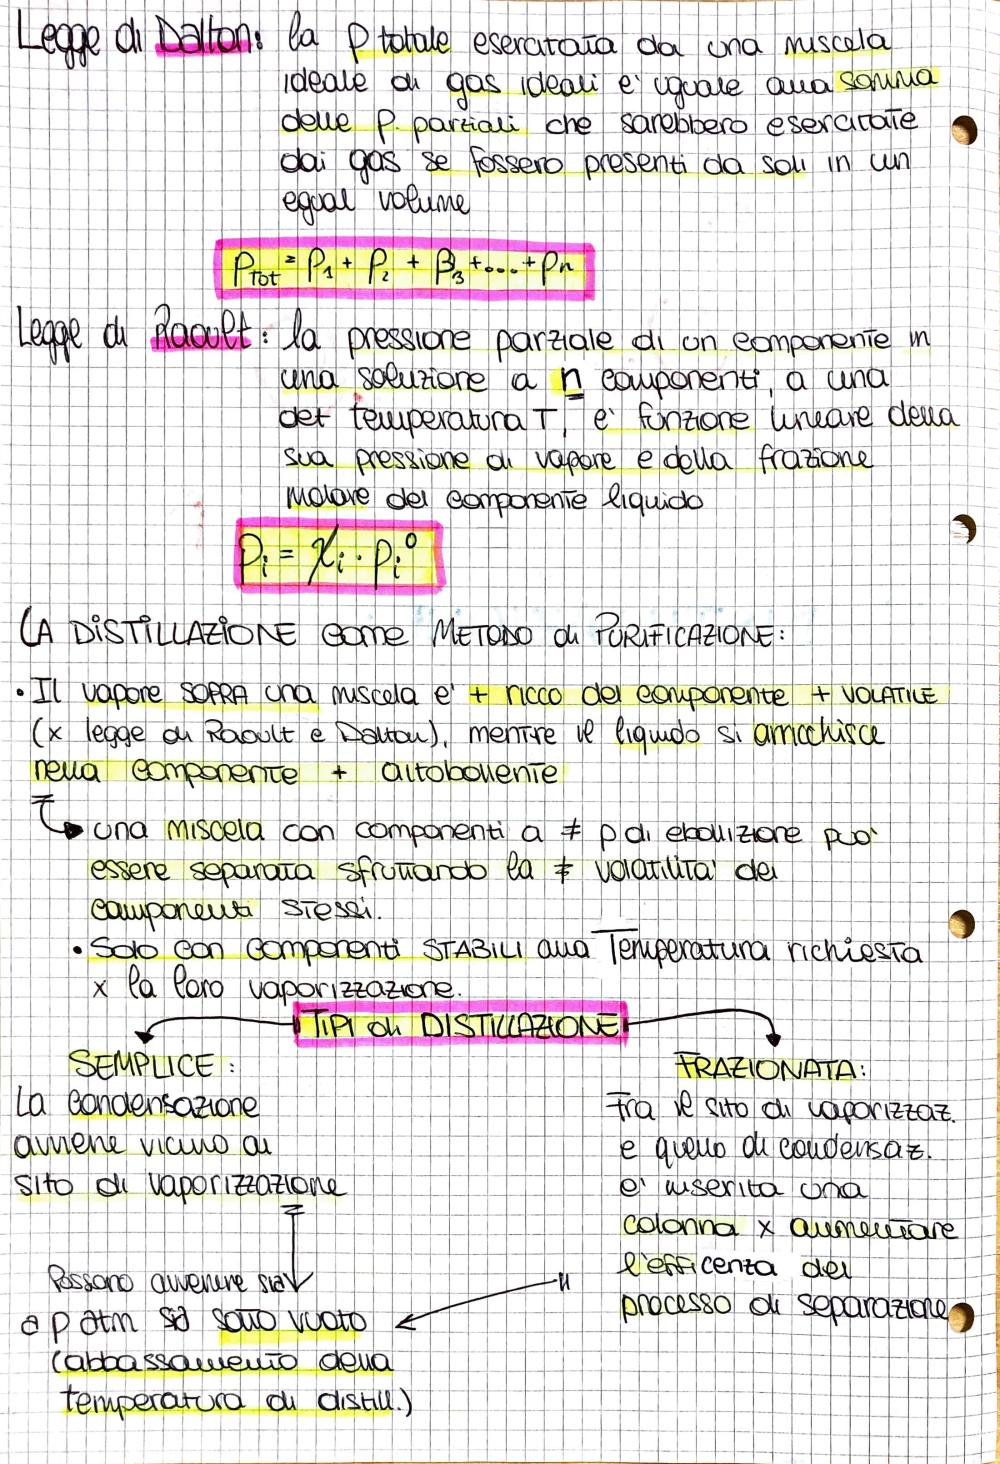 Legge di Dalton: la p totale esercitata da una miscela
ideale di gas ideali e' uguale alla somma
delle p. parziali che sarebbero esercitate
dai gas se fossero presenti da soli in un
egual volume
PTot = P1 + P2 + P3 + .... + Pn
Legge di Raoult: la pressione parziale di un componente in
una soluzione a n componenti, a una
det temperatura T, e' funzione lineare della
sua pressione di vapore e della frazione
molare del componente liquido
Pi = χi · Pi°
LA DISTILLAZIONE come METODO di PURIFICAZIONE:
• Il vapore SOPRA una miscela e' + ricco del componente + VOLATILE
(x legge di Raoult e Dalton), mentre il liquido si arricchisce
nella componente + altobollente
una miscela con componenti a ≠ p di ebollizione puo'
essere separata sfruttando la ≠ volatilita' dei
componenti stessi.
• Solo con componenti STABILI alla Temperatura richiesta
x la loro vaporizzazione.
TIPI di DISTILLAZIONE
SEMPLICE:
La condensazione
avviene vicino al
sito di vaporizzazione
FRAZIONATA:
Fra il sito di vaporizzaz.
e quello di condensaz.
e' inserita una
colonna x aumentare
l'efficenza del
processo di separazione
Possono avvenire sia
a p atm sia sotto vuoto
(abbassamento della
temperatura di distill.)